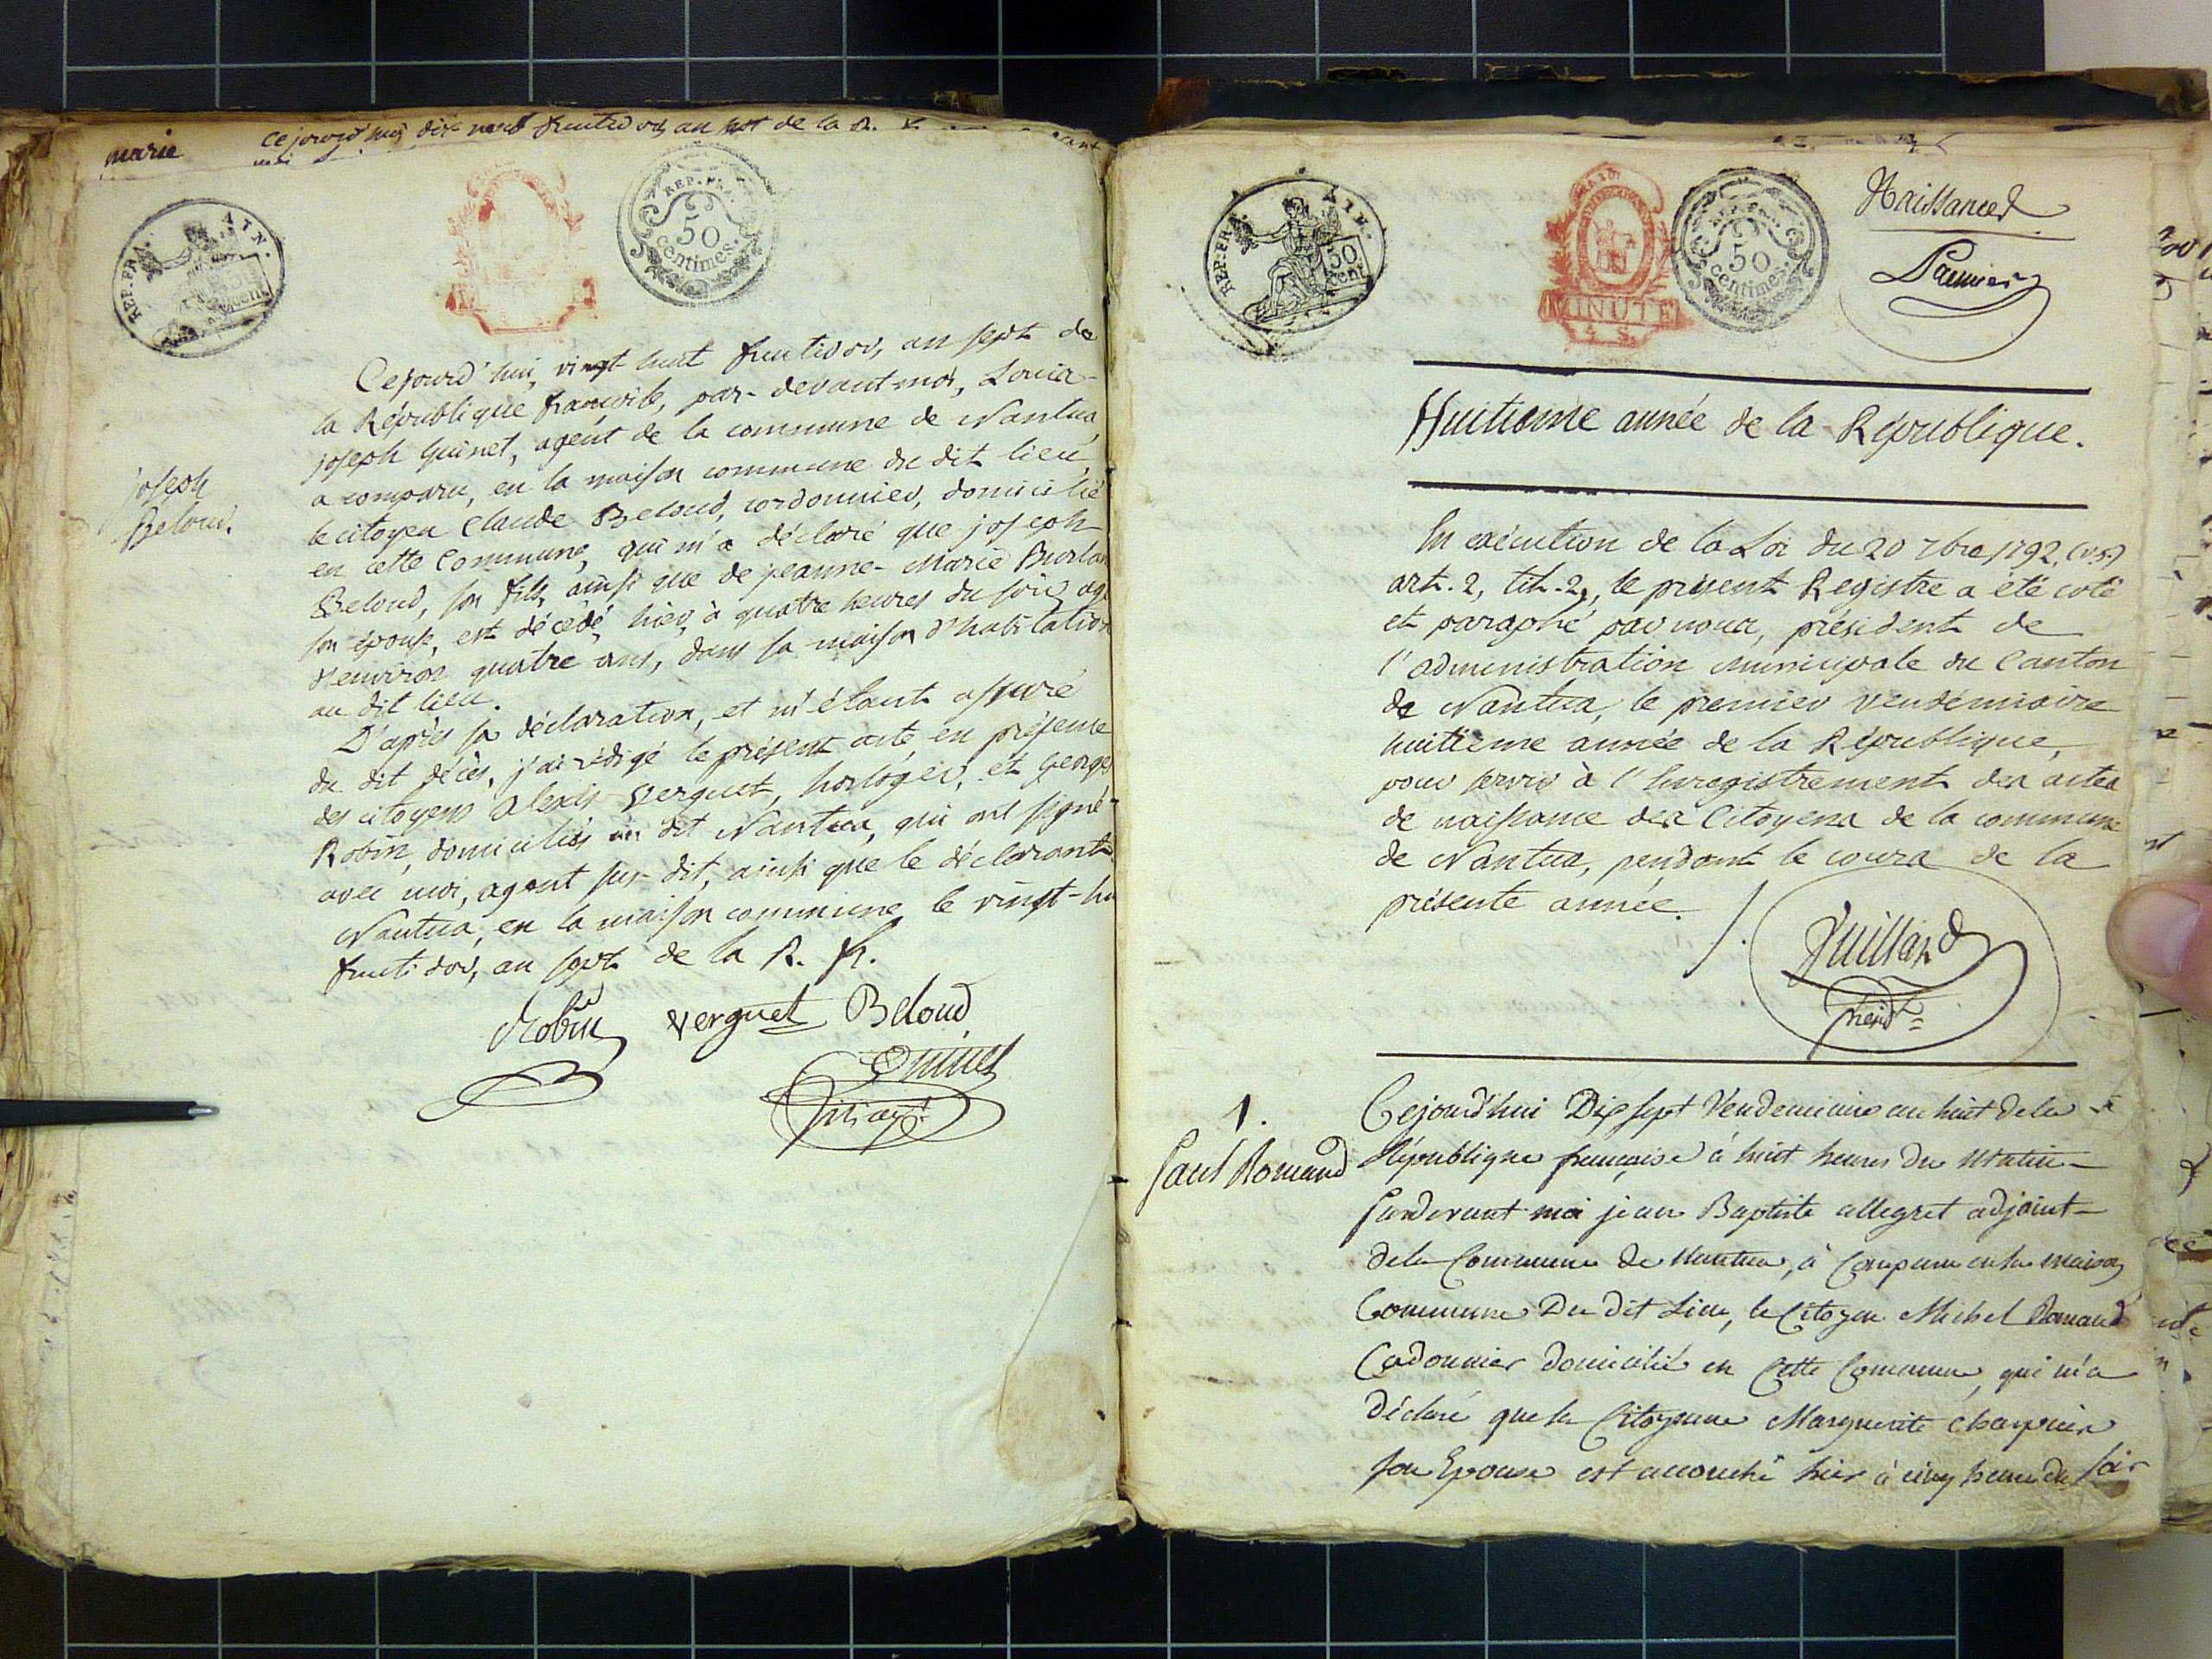 marie
Cejourd'hui, dix neuf fructidor, an sept de la R.
REP. FRA.
AIN.
50 cent.
REP. FRA.
50
centimes.
Cejourd'hui, vingt-huit fructidor, an sept de
la République françoise, par-devant moi, Louis-
joseph Guinet, agent de la commune de Nantua,
a comparu, en la maison commune du dit lieu,
joseph
Beloud.
le citoyen Claude Beloud, cordonnier, domicilié
en cette Commune, qui m'a déclaré que joseph
Beloud, son fils, ainsi que de jeanne-Marie
son épouse, est décédé, hier, à quatre heures du soir, agé
d'environ quatre ans, dans sa maison d'habitation
au dit lieu.
D'après sa déclaration, et m'étant assuré
du dit décès, j'ai rédigé le présent acte, en présence
des citoyens Alexis Verguet, horloger, et George
Robin, domiciliés au dit Nantua, qui ont signé
avec moi, agent sus-dit, ainsi que le déclarant
Nantua, en la maison commune le vingt-hu
fructidor, an sept de la R. fr.
Robin verguet Beloud
Guinet
REP. FRA.
AIN.
50 cent.
MINUTE
REP. FRA.
50
centimes.
Naissances
Premier
Huitieme année de la République.
En exécution de la Loi du 20 7bre 1792, (v.s.)
art. 2, tit. 2, le présent Registre a été coté
et paraphé par nous, président de
l'administration municipale du Canton
de Nantua, le premier vendémiaire
huitieme année de la République,
pour servir à l'Enregistrement des actes
de naissance des Citoyens de la commune
de Nantua, pendant le cours de la
présente année.
Juillard
présidt
1.
Paul Romand
Cejourd'hui Dix sept Vendemiaire an huit de la
République françoise à huit heures du Matin
Pardevant moi jean Baptiste allegret adjoint
de la Commune de Nantua, à Comparu en la maison
Commune Du dit Lieu, le Citoyen Michel Romand
Cordonnier domicilié en Cette Commune, qui m'a
Déclaré que la Citoyenne Marguerite
Son Epouse est accouché hier à cinq heures du soir